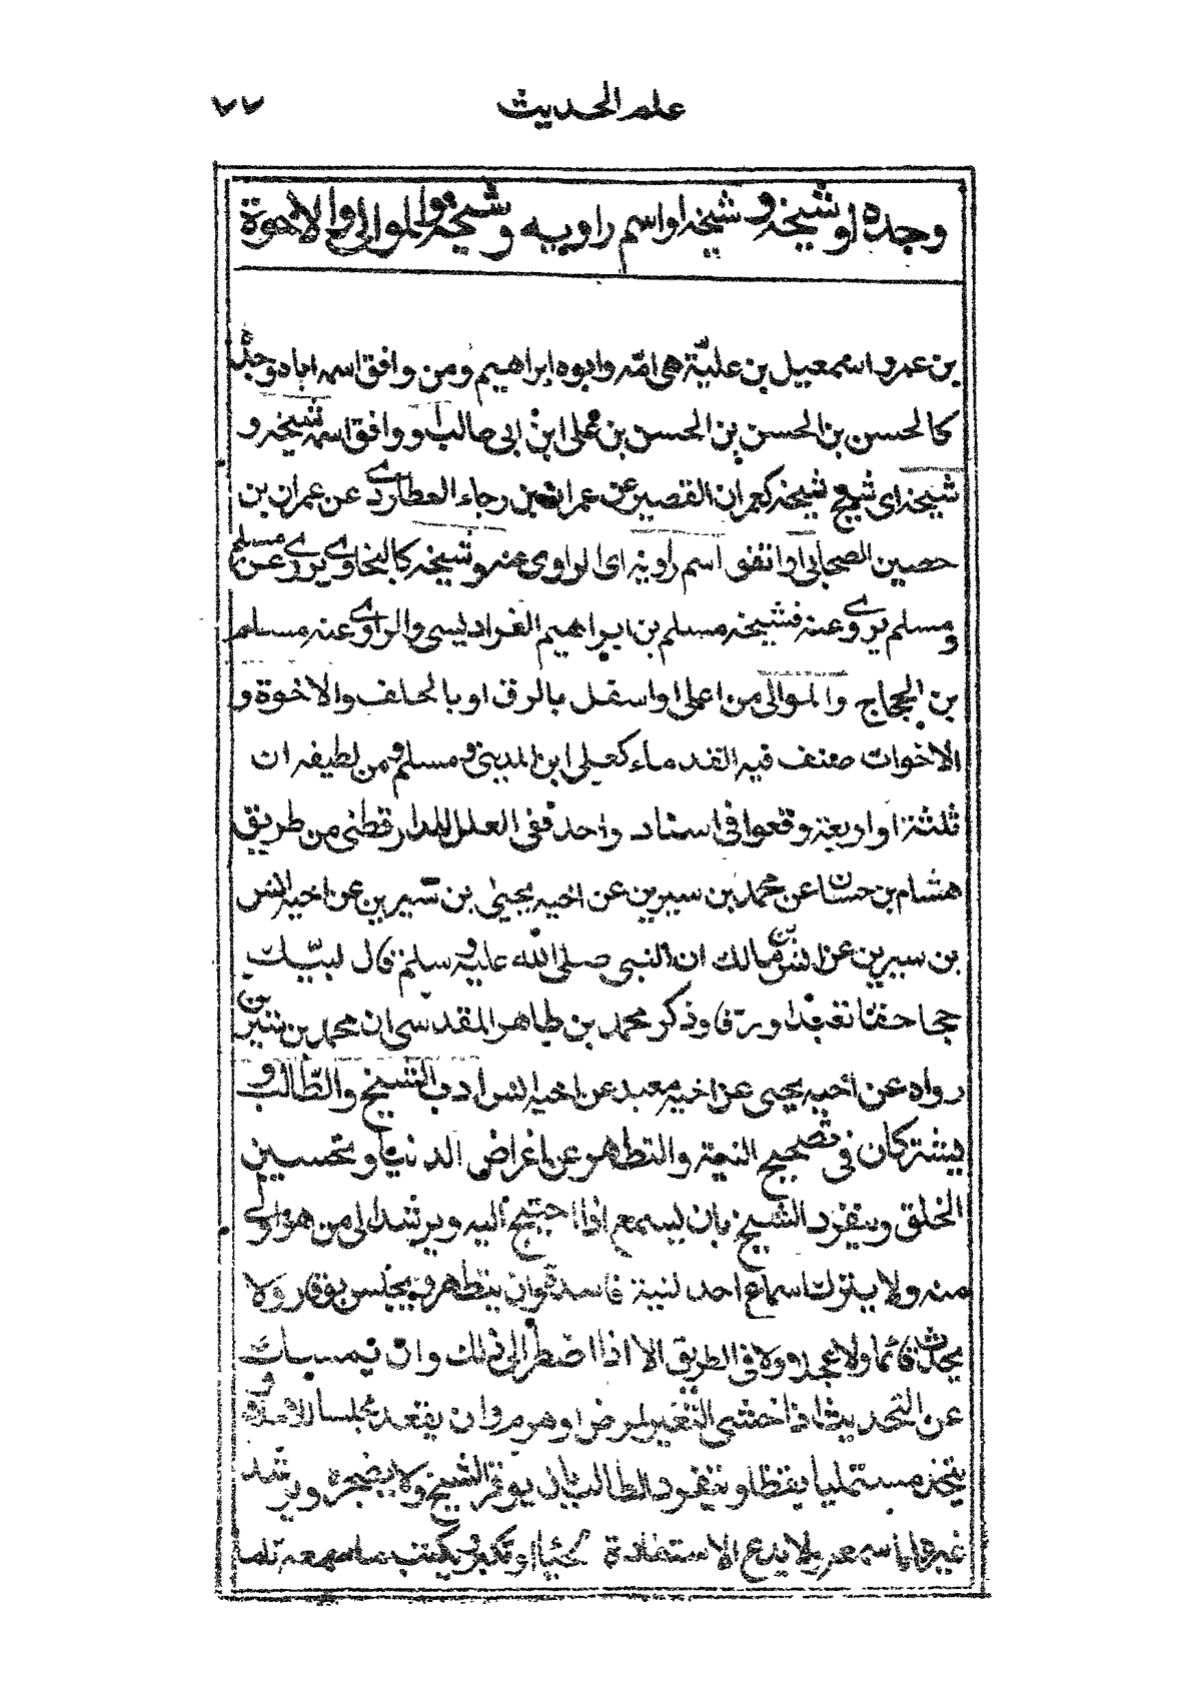 علم الحديث ٧٧
وجده او شيخه و شيخه او اسم راويه و شيخه والموالى والاخوة
بن عمرو اسمعيل بن علية هى امه وابوه ابراهيم ومن وافق اسمه اباه وجده
كالحسن بن الحسن بن الحسن بن على ابن ابى طالب او وافق اسمه شيخه و
شيخه اى شيخ شيخه كعمران القصير عن عمران بن رجاء العطاردى عن عمران بن
حصين الصحابى او اتفق اسم راويه اى الراوى عنه وشيخه كالبخارى يروى عن مسلم
ومسلم يروى عنه فشيخه مسلم بن ابراهيم الفراديسى والراوى عنه مسلم
بن الحجاج والموالى من اعلى او اسفل بالرق او بالحلف والاخوة و
الاخوات صنف فيه القدماء كعلى ابن المدينى ومسلم ومن لطيفه ان
ثلثة او اربعة وقعوا فى اسناد واحد ففى العلل للدارقطنى من طريق
هشام بن حسان عن محمد بن سيرين عن اخيه يحيى بن سيرين عن اخيه انس
بن سيرين عن انس بن مالك ان النبى صلى الله عليه وسلم قال لبيك
حجا حقا تعبدا ورقا وذكر محمد بن طاهر المقدسى ان محمد بن سيرين
رواه عن اخيه يحيى عن اخيه معبد عن اخيه انس ادب الشيخ والطالب و
يشتركان فى تصحيح النية والتطهر عن اغراض الدنيا وتحسين
الخلق وينفرد الشيخ بان يسمع اذا احتيج اليه ويرشد الى من هو اولى
منه ولا يترك اسماع احد لنية فاسدة وان يتطهر ويجلس بوقار ولا
يحدث قائما ولا عجلا ولا فى الطريق الا اذا اضطر الى ذلك وان يمسك
عن التحديث اذا خشى التغير لمرض او هرم وان يعقد مجلسا للاملاء و
يتخذ مستمليا يقظا وينفرد الطالب بان يوقر الشيخ ولا يضجره ويرشد
غيره لما سمعه ولا يدع الاستفادة لحياء او تكبر ويكتب ما سمعه تاما